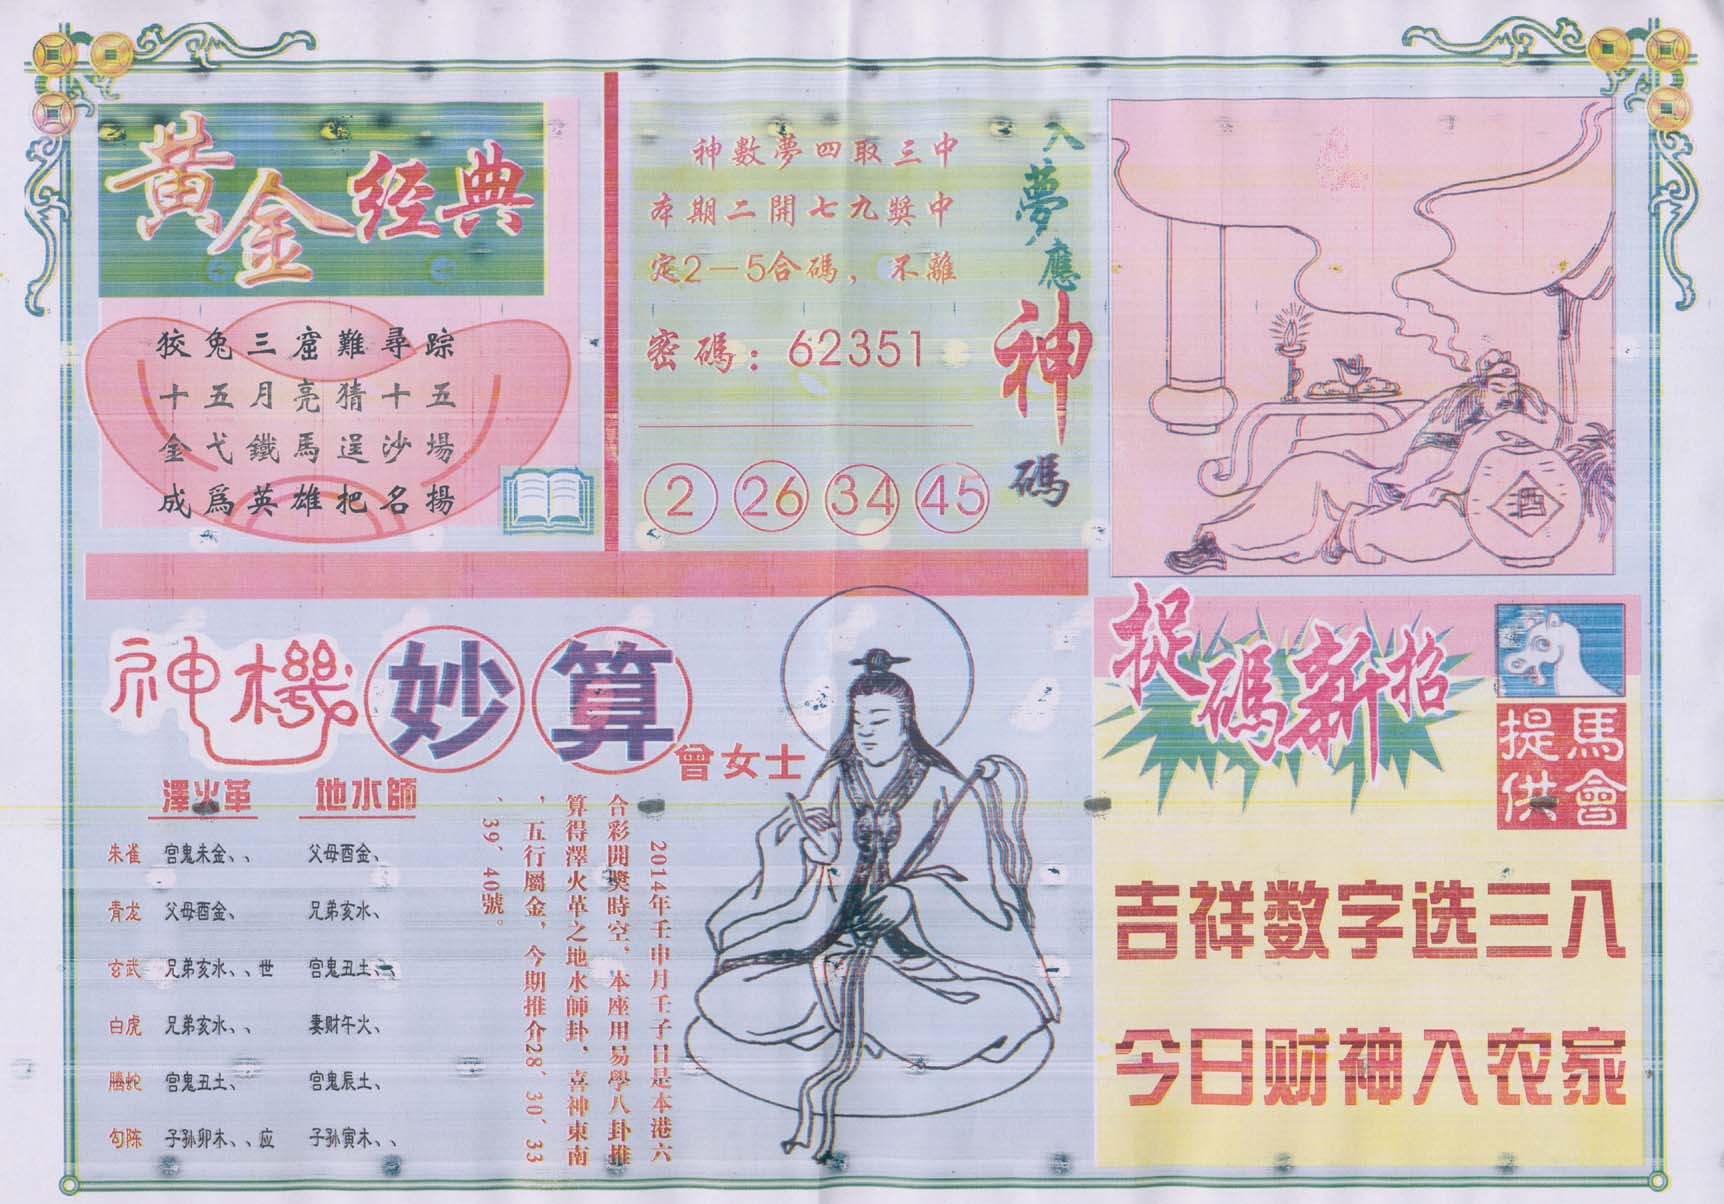 黃金经典
狡兔三窟難尋踪
十五月亮猜十五
金戈鐵馬逞沙場
成爲英雄把名揚
入夢應神碼
神數夢四取三中
本期二開七九獎中
定2—5合碼，不離
密碼：62351
2 26 34 45
酒
神機妙算
曾女士
澤火革 地水師
朱雀 官鬼未金、、 父母酉金、
青龙 父母酉金、 兄弟亥水、
玄武 兄弟亥水、、世 官鬼丑土、、
白虎 兄弟亥水、、 妻财午火、
螣蛇 官鬼丑土、 官鬼辰土、
勾陈 子孙卯木、、应 子孙寅木、、
2014年壬申月壬子日是本港六
合彩開獎時空，本座用易學八卦推
算得澤火革之地水師卦、喜神東南
，五行屬金，今期推介28、30、33
、39、40號。
捉碼新招
馬會
提供
吉祥数字选三八
今日财神入农家